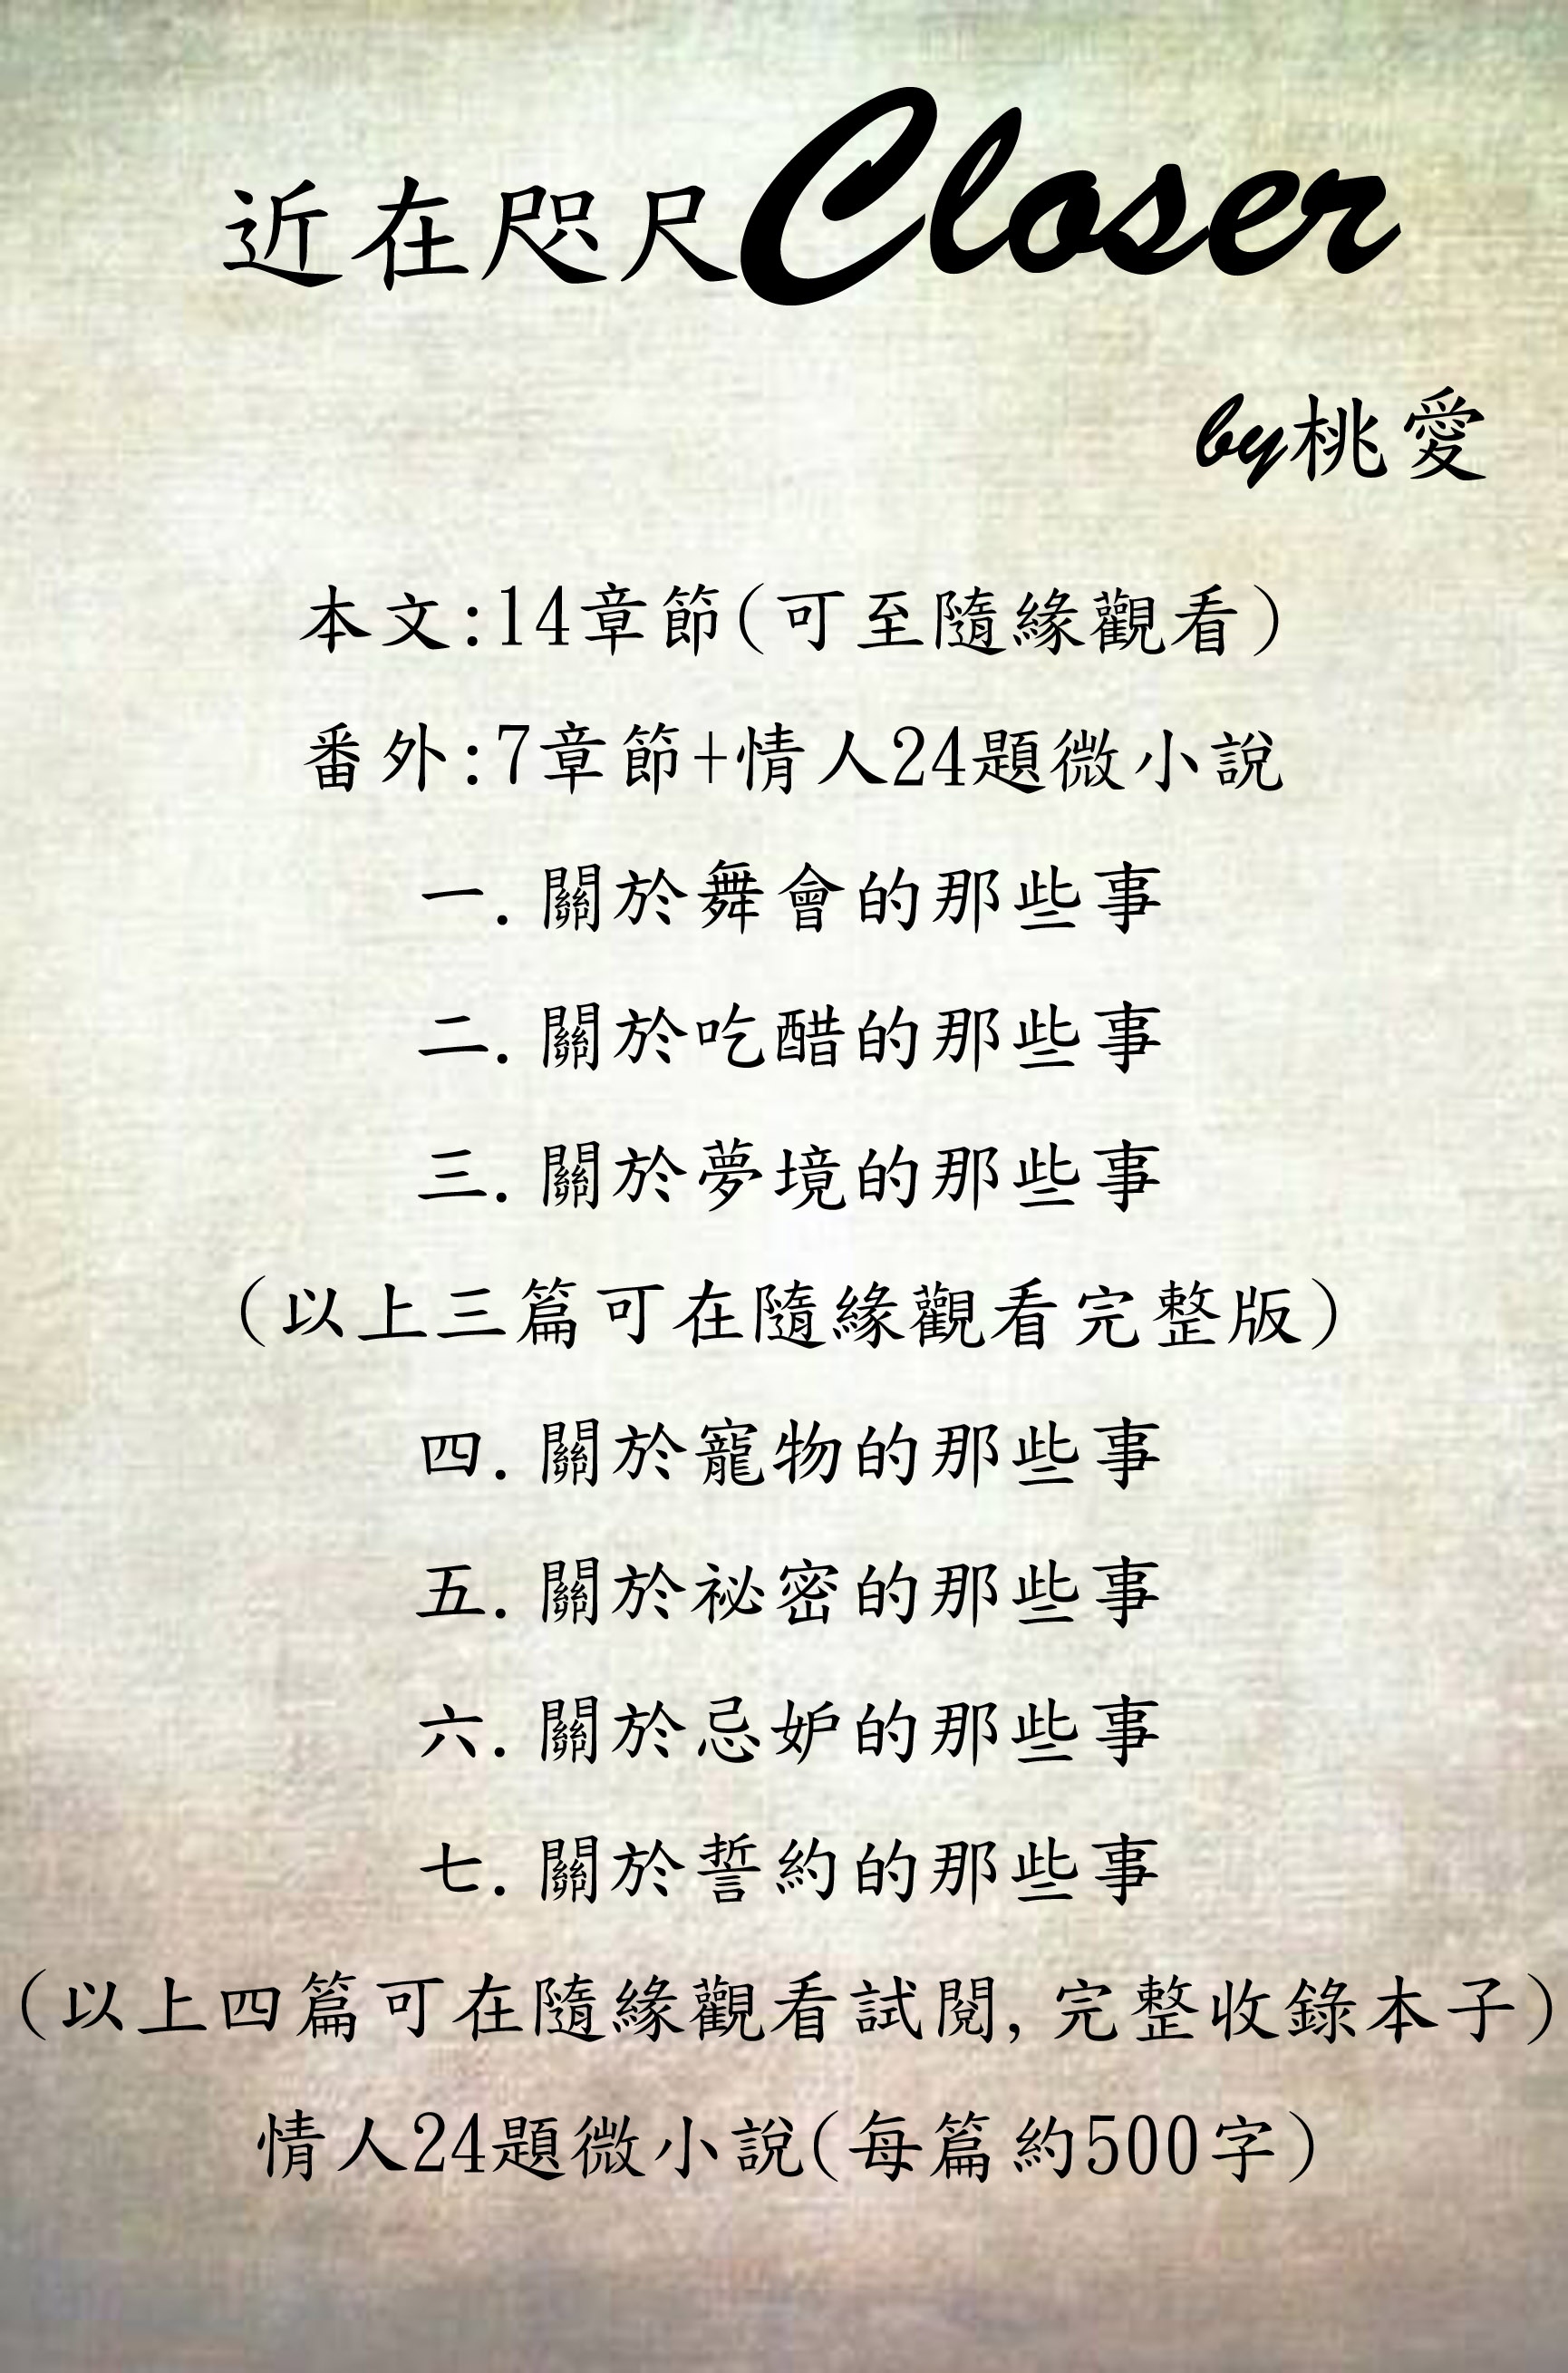 近在咫尺Closer
by桃愛
本文:14章節(可至隨緣觀看)
番外:7章節+情人24題微小說
一.關於舞會的那些事
二.關於吃醋的那些事
三.關於夢境的那些事
(以上三篇可在隨緣觀看完整版)
四.關於寵物的那些事
五.關於祕密的那些事
六.關於忌妒的那些事
七.關於誓約的那些事
(以上四篇可在隨緣觀看試閱,完整收錄本子)
情人24題微小說(每篇約500字)